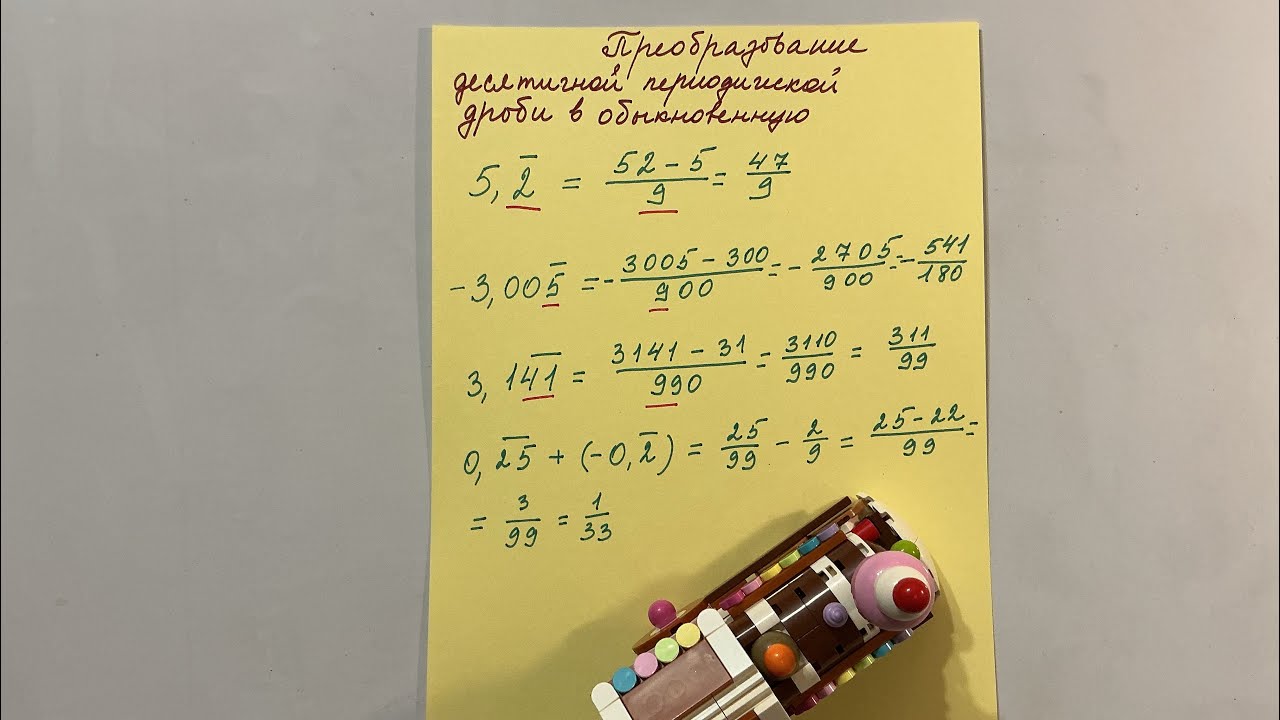 Преобразование
десятичной периодической
дроби в обыкновенную
5,2̅ = (52 - 5)/9 = 47/9
-3,005̅ = -(3005 - 300)/900 = -2705/900 = -541/180
3,14̅1̅ = (3141 - 31)/990 = 3110/990 = 311/99
0,2̅5̅ + (-0,2̅) = 25/99 - 2/9 = (25-22)/99 =
= 3/99 = 1/33